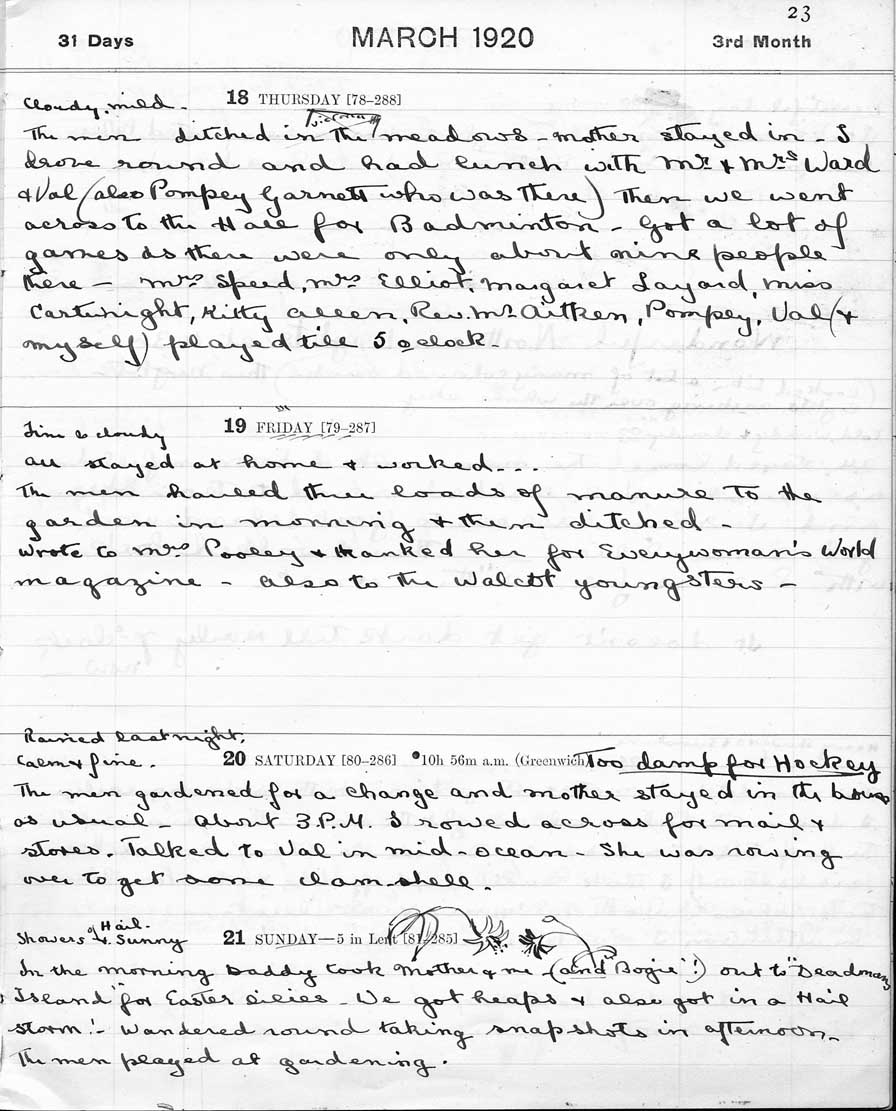 23
31 Days MARCH 1920 3rd Month
Cloudy, mild. 18 THURSDAY [78–288]
The men ditched in the meadows – mother stayed in – I
drove round and had lunch with Mr. & Mrs Ward
& Val (also Pompey Garnett who was there) Then we went
across to the Hall for Badminton – Got a lot of
games as there were only about nine people
there – Mrs Speed, Mrs Elliot, Margaret Layard, Miss
Cartwright, Kitty Allen, Rev. Mr Aitken, Pompey, Val (&
myself) played till 5 oclock.
Fine & cloudy 19 FRIDAY [79–287]
All stayed at home & worked...
The men hauled three loads of manure to the
garden in morning & then ditched –
Wrote to Mrs Pooley & thanked her for Everywoman's World
magazine – also to the Walcot youngsters –
Rained last night.
Calm & fine. 20 SATURDAY [80–286] 10h 56m a.m. (Greenwich) Too damp for Hockey
The men gardened for a change and mother stayed in the house
as usual – About 3.P.M. I rowed across for mail &
stores. Talked to Val in mid-ocean – She was rowing
over to get some clam-shell.
Showers of Hail. & Sunny 21 SUNDAY—5 in Lent [81–285]
In the morning Daddy took Mother & me – (and "Bogie"!) out to "Deadmans
Island" for Easter lilies – We got heaps & also got in a Hail
storm! – Wandered round taking snap-shots in afternoon –
The men played at gardening.